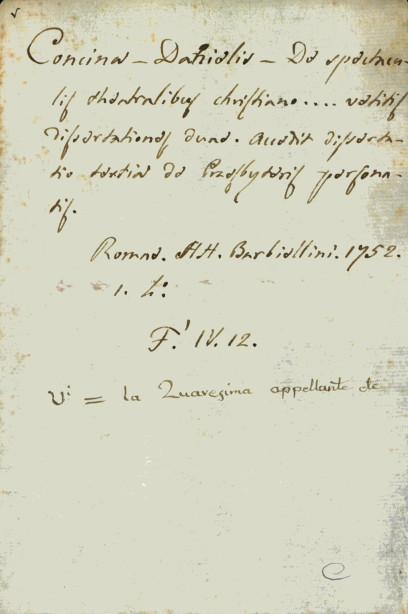 Concina - Danielis - De spectacu-
lis theatralibus christiano.... vetitis
dissertationes duae. Accedit disserta-
tio tertia de Presbyteris persona-
tis.
Romae. HH. Barbiellini. 1752.
1. t.°
F.' IV. 12.
Vi = la Quaresima appellante etc
C